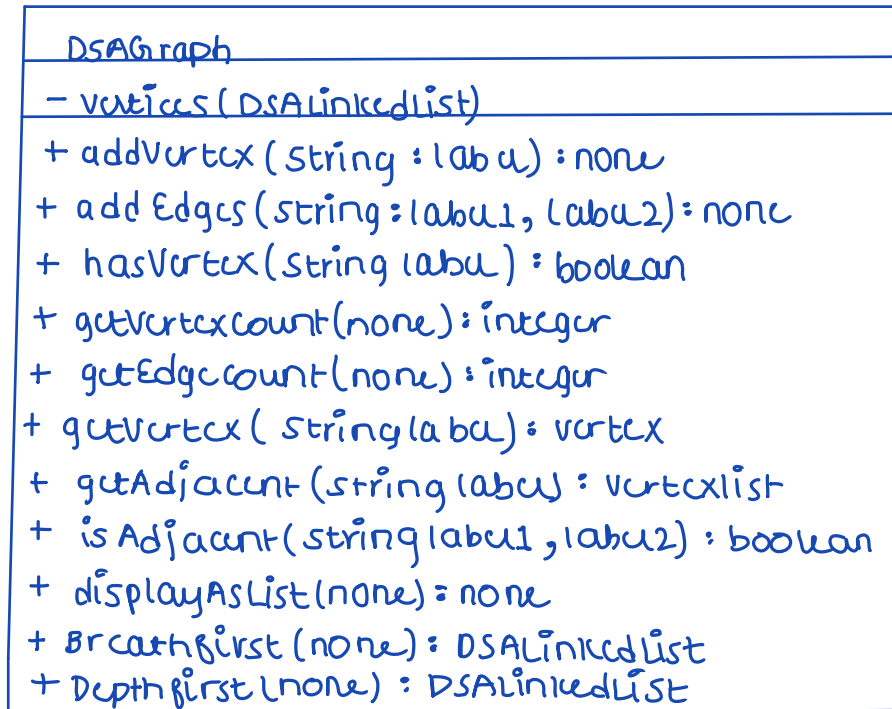 DSAGraph
- vertices (DSALinkedList)
+ addVertex (string : label) : none
+ addEdges (string : label1, label2) : none
+ hasVertex (string label) : boolean
+ getVertexcount (none) : integer
+ getEdgecount (none) : integer
+ getVertex ( string label) : vertex
+ getAdjacent (string label) : vertexlist
+ isAdjacent (string label1, label2) : boolean
+ displayAsList (none) : none
+ Breathfirst (none) : DSALinkedList
+ Depthfirst (none) : DSALinkedList